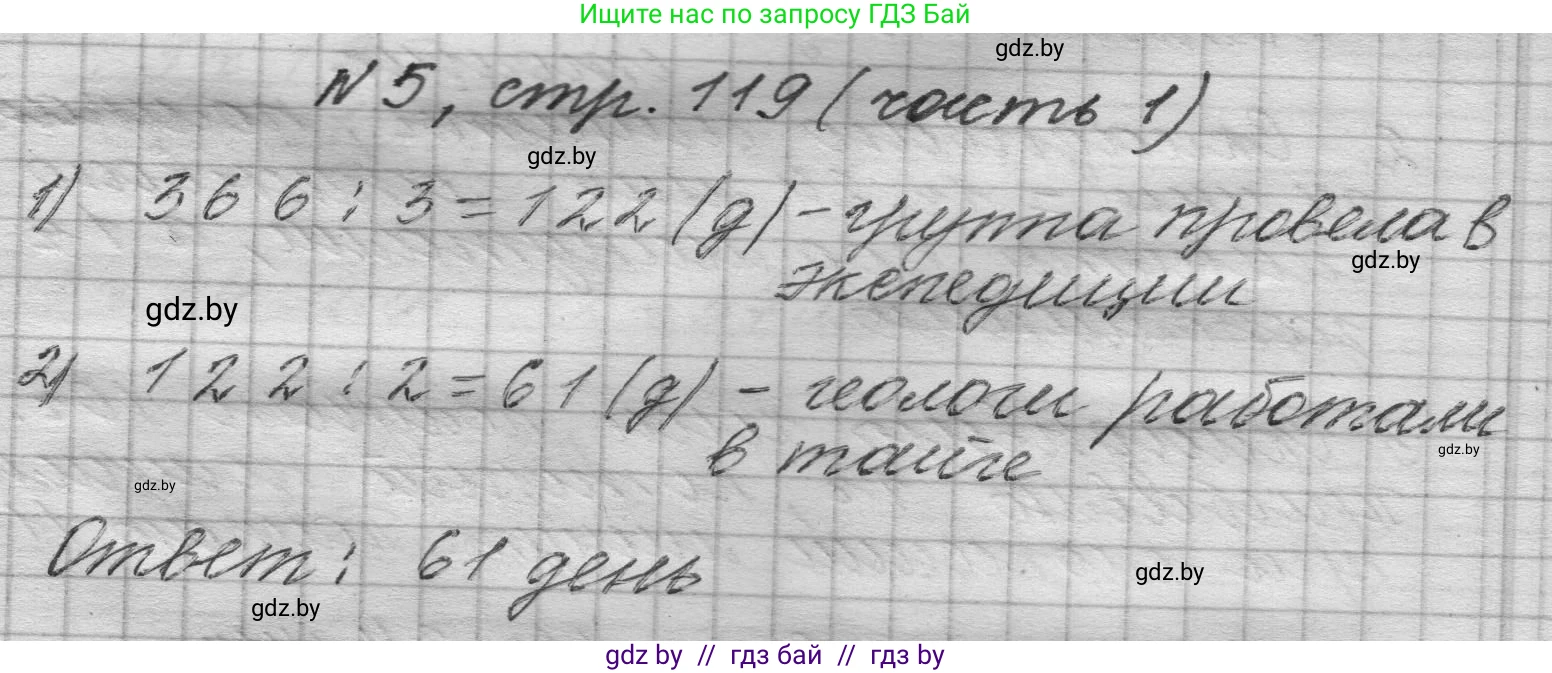 Ищите нас по запросу ГДЗ Бай
gdz.by
N 5, стр. 119 (часть 1)
gdz.by
1) 366 : 3 = 122 (д) - группа провела в
gdz.by
экспедиции
gdz.by
2) 122 : 2 = 61 (д) - геологи работали
gdz.by
в тайге
gdz.by
Ответ: 61 день
gdz.by
gdz.by
gdz by // гдз бай // гдз by